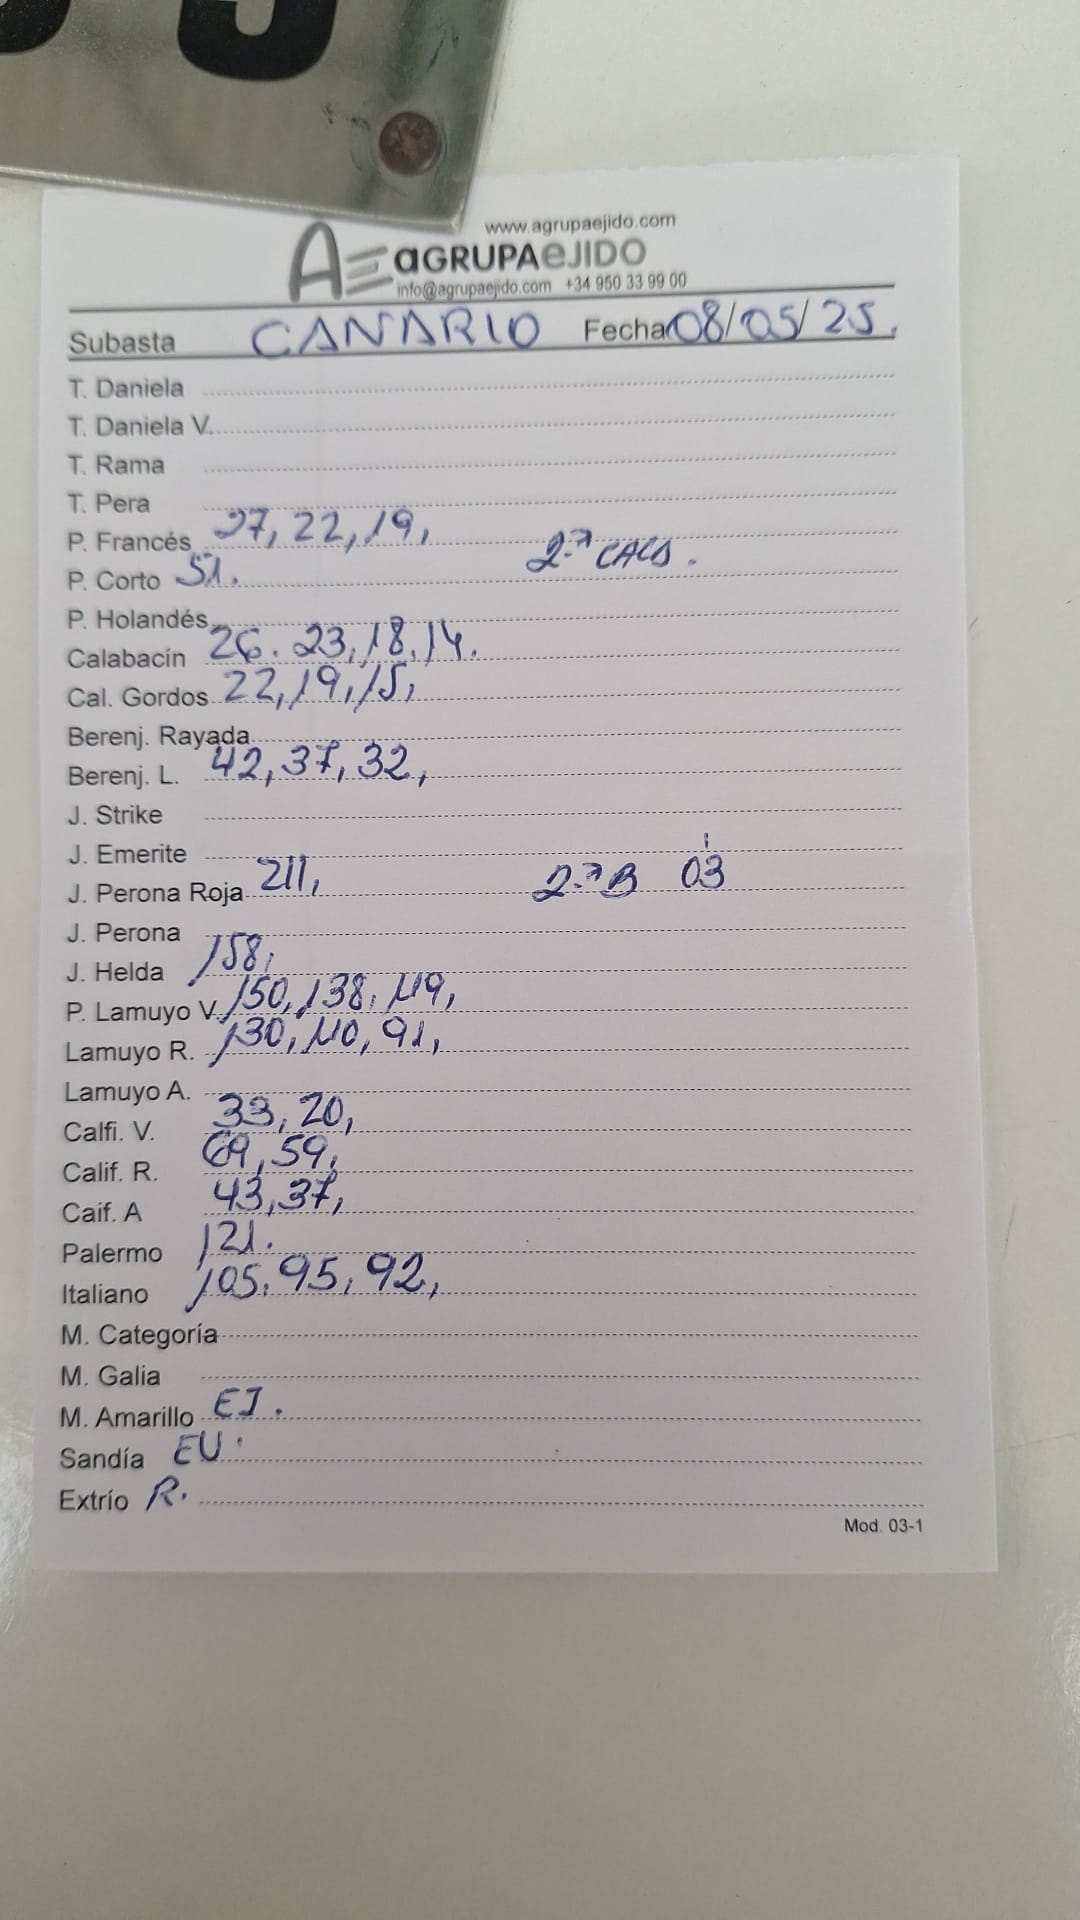 www.agrupaejido.com
AE aGRUPAeJIDO
info@agrupaejido.com +34 950 33 99 00
Subasta CANARIO Fecha 08/05/25.
T. Daniela
T. Daniela V.
T. Rama
T. Pera
P. Francés 27, 22, 19,
P. Corto 51. 2.ª CALA.
P. Holandés
Calabacín 26. 23, 18, 14.
Cal. Gordos 22, 19, 15,
Berenj. Rayada
Berenj. L. 42, 37, 32,
J. Strike
J. Emerite
J. Perona Roja 211, 2.ª B 03
J. Perona
J. Helda 158,
P. Lamuyo V. 150, 138, 119,
Lamuyo R. 130, 110, 91,
Lamuyo A.
Calfi. V. 33, 20,
Calif. R. 69, 59,
Caif. A 43, 37,
Palermo 121.
Italiano 105, 95, 92,
M. Categoría
M. Galia
M. Amarillo EJ.
Sandía EU.
Extrío R.
Mod. 03-1